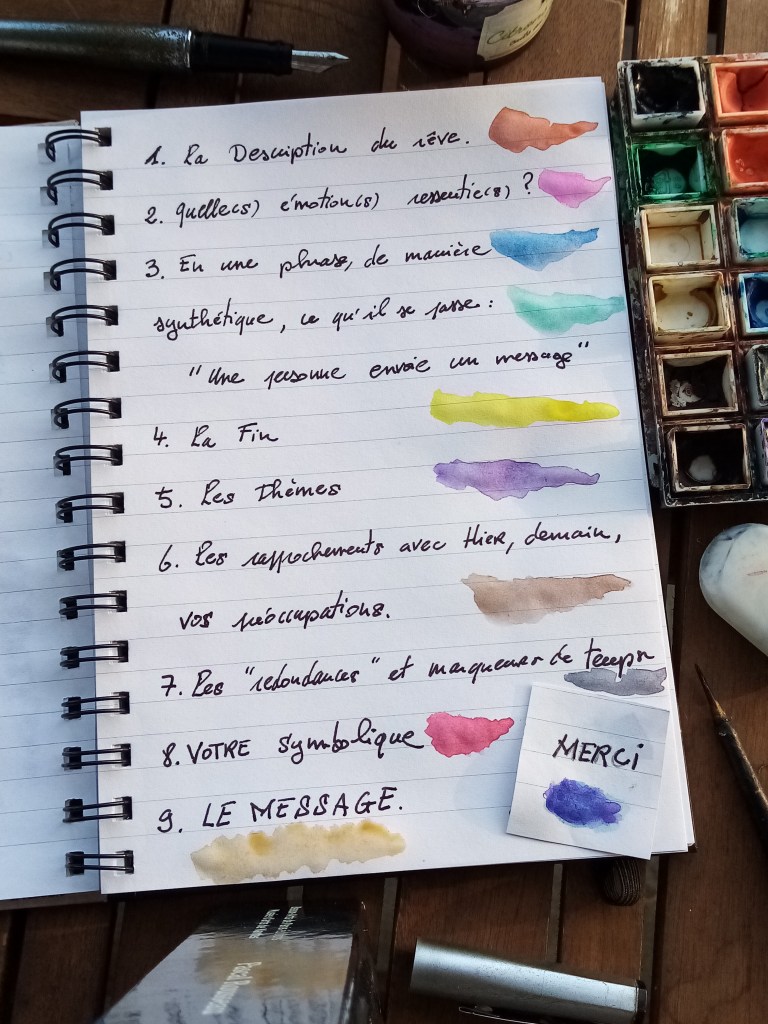 1. La Description du rêve.
2. Quelle(s) émotion(s) ressentie(s) ?
3. En une phrase, de manière
synthétique, ce qu'il se passe :
"Une personne envoie un message"
4. La Fin
5. Les Thèmes
6. Les rapprochements avec Hier, demain,
vos préoccupations.
7. Les "redondances" et marqueurs de temps
8. VOTRE symbolique
MERCi
9. LE MESSAGE.